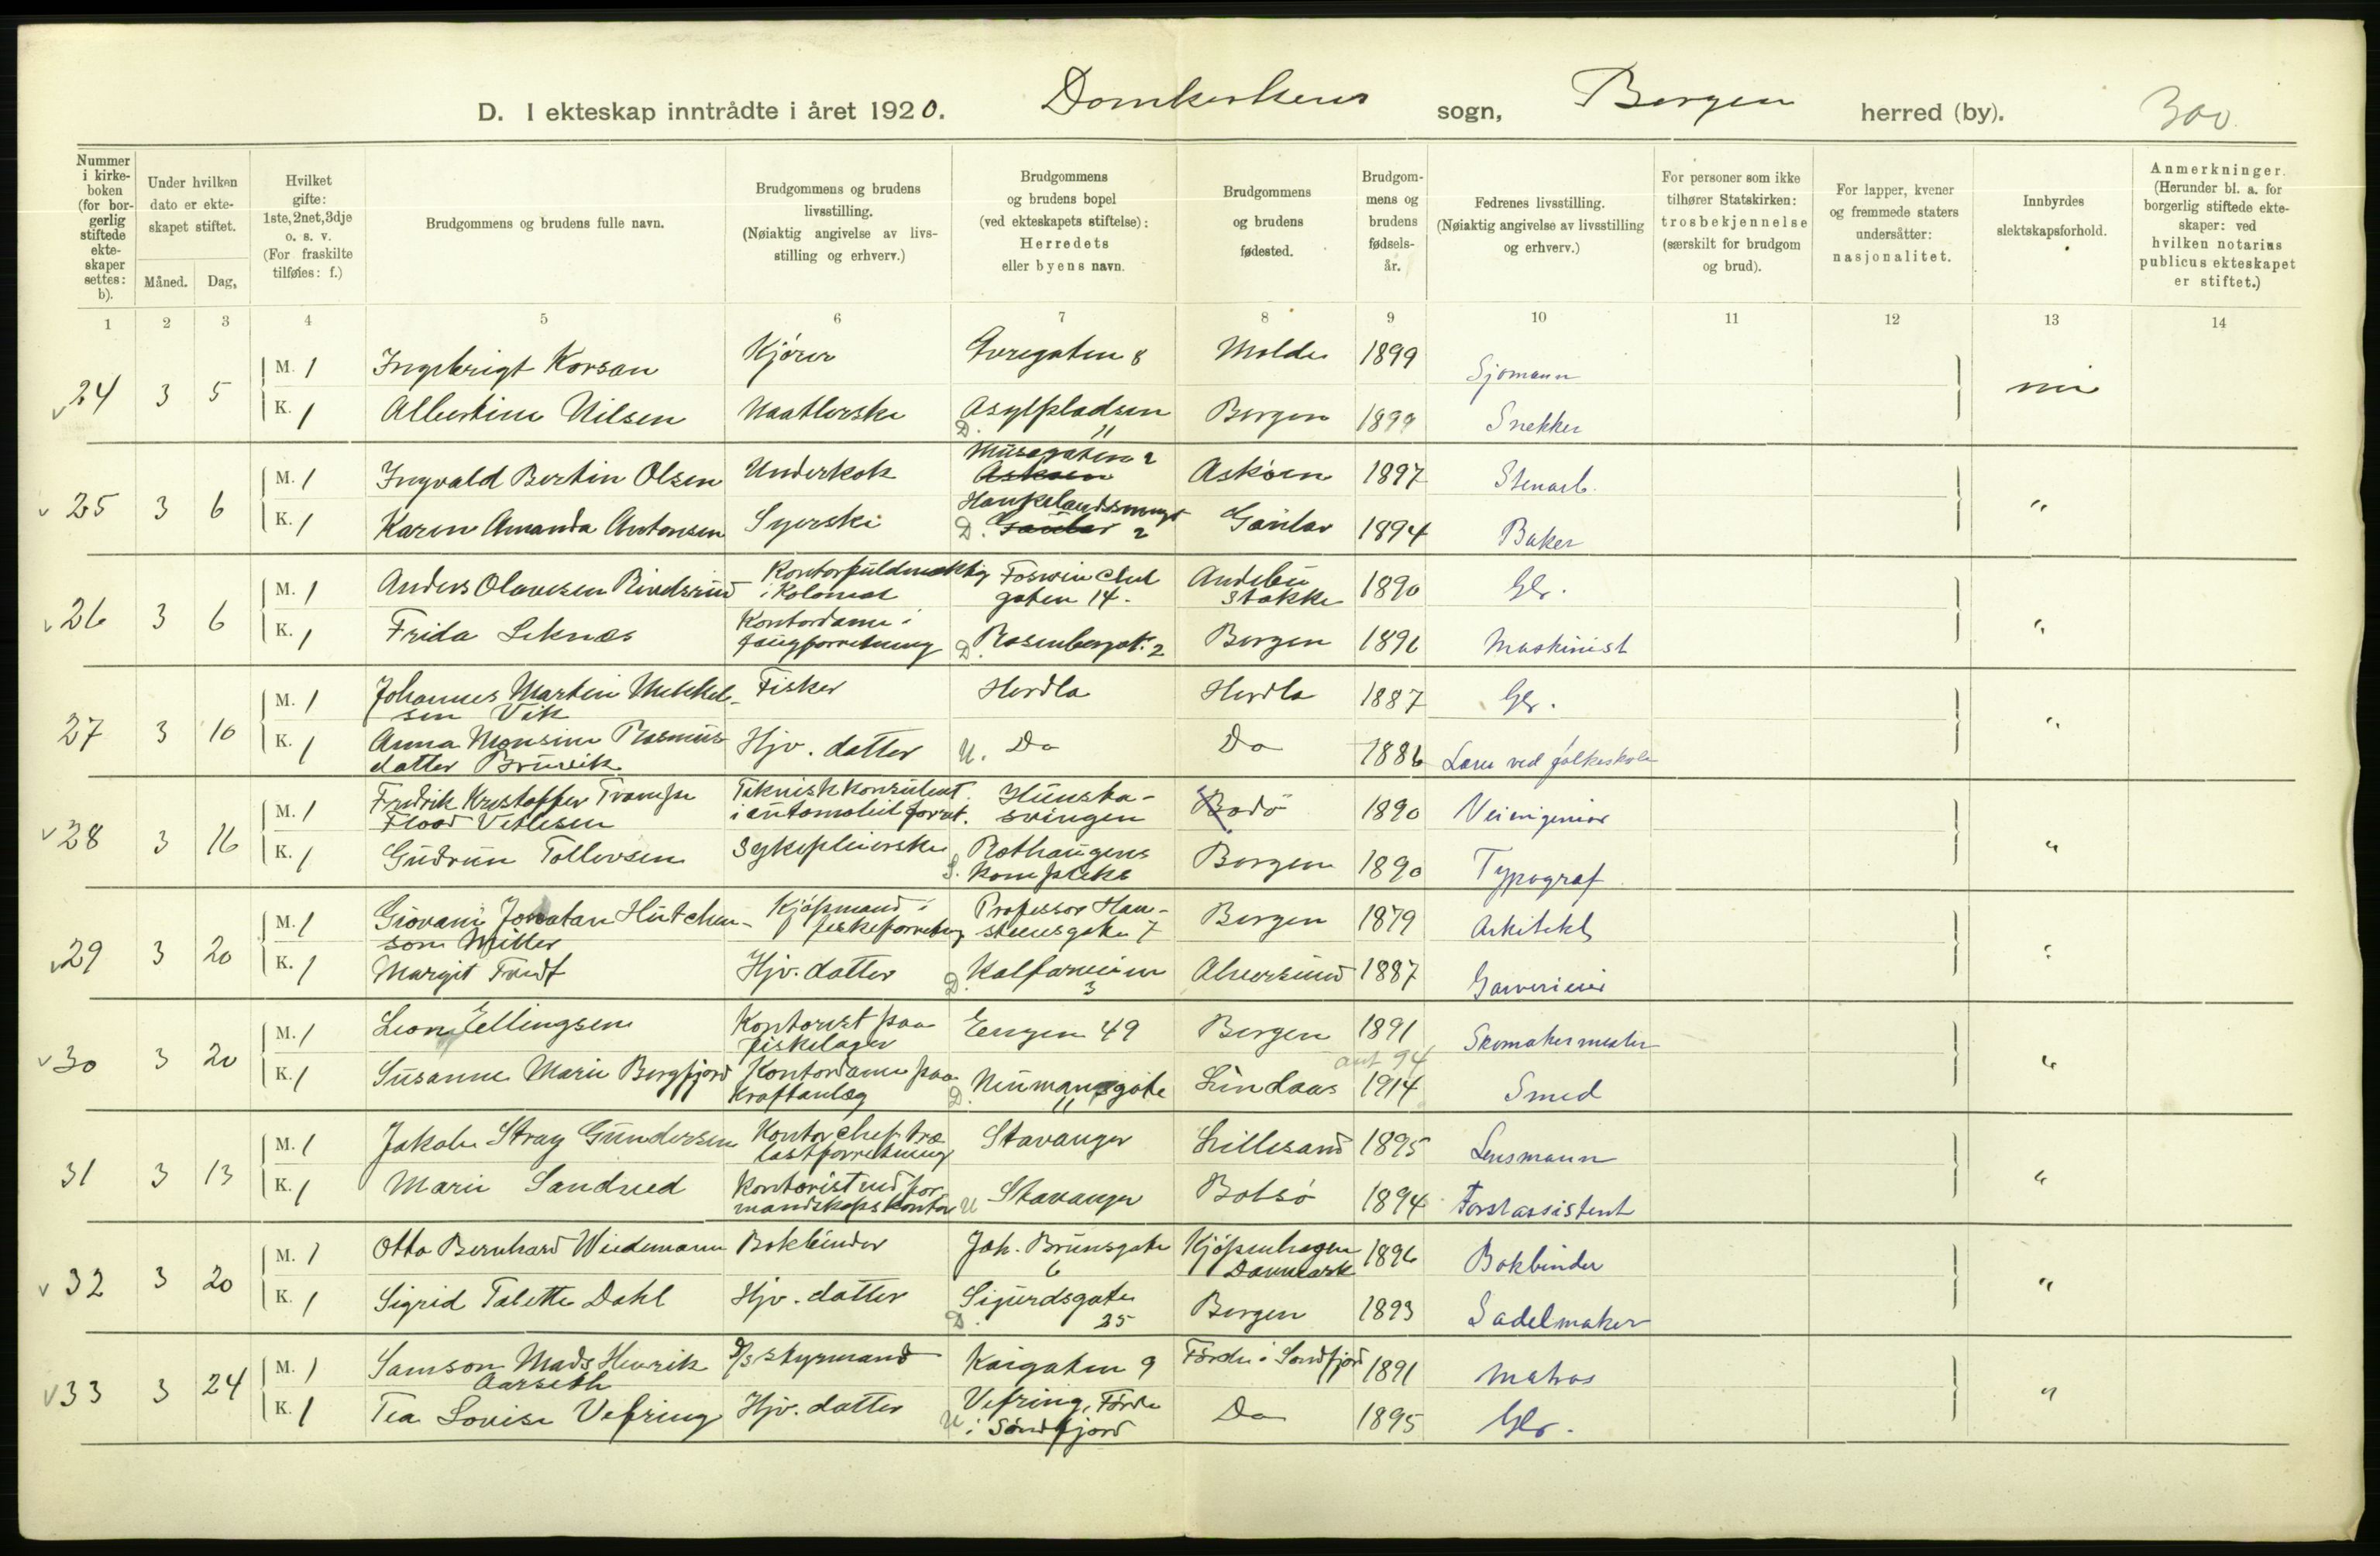 D. I ekteskap inntrådte i året 1920. Domkirkens sogn, Bergen herred (by). 300
Nummer i kirkeboken (for borgerlig stiftede ekteskaper settes: b).
Under hvilken dato er ekteskapet stiftet.
Måned. Dag,
Hvilket gifte: 1ste, 2net, 3dje o. s. v. (For fraskilte tilføies: f.)
Brudgommens og brudens fulle navn.
Brudgommens og brudens livsstilling. (Nøiaktig angivelse av livsstilling og erhverv.)
Brudgommens og brudens bopel (ved ekteskapets stiftelse): Herredets eller byens navn.
Brudgommens og brudens fødested.
Brudgommens og brudens fødselsår.
Fedrenes livsstilling. (Nøiaktig angivelse av livsstilling og erhverv.)
For personer som ikke tilhører Statskirken: trosbekjennelse (særskilt for brudgom og brud).
For lapper, kvener og fremmede staters undersåtter: nasjonalitet.
Innbyrdes slektskapsforhold.
Anmerkninger. (Herunder bl. a. for borgerlig stiftede ekteskaper: ved hvilken notarius publicus ekteskapet er stiftet.)
1 2 3 4 5 6 7 8 9 10 11 12 13 14
24 3 5 M. 1 Ingebrigt Korsan Kjører Øvregaten 8 Molde 1899 Sjømann
K. 1 Albertine Nilsen Naatlerske D. Asylpladsen 11 Bergen 1899 Snekker
v 25 3 6 M. 1 Ingvald Bertin Olsen Underkok Musegaten 2 Askøen Askøen 1897 Stenarb. "
K. 1 Karen Amanda Antonsen Syerske D. Haukelandssmuget 2 Gaular Gaular 1894 Baker
v 26 3 6 M. 1 Anders Olavesen Rindsrud Kontorfuldmektig i Kolonial gaten 14. Andebu Stokke 1890 Gbr. "
K. 1 Frida Leknæs Kontordame i D. Rosenbergsgt. 2 Bergen 1896 Maskinist
27 3 10 M. 1 Johannes Martin Mikkelsen Vik Fisker Herdla Herdla 1887 Gbr. "
K. 1 Anna Monsine Rasmusdatter Bruvik Hjv. datter U. Do Do 1886 Lærer ved folkeskole
v 28 3 16 M. 1 Fredrik Kristoffer Trampe Flood Vetlesen Teknisk konsulent i automobilforret. Hunstasvingen Bodø 1890 Veiingeniør "
K. 1 Gudrun Tollevsen Sykepleierske Rothaugens Bergen 1890 Typograf
v 29 3 20 M. 1 Giovani Jonatan Hutchenson Miller Kjøpmand i fiskeforretning Professor Hansteensgate 7 Bergen 1879 Arkitekt "
K. 1 Margit Hjv. datter D. Kalfarveien 3 Alversund 1887 Garverieier
v 30 3 20 M. 1 Leon Ellingsen Kontorist paa fiskelager Engen 49 Bergen 1891 Skomakermester "
K. 1 Susanne Marie Bergfjord Kontordame paa Kraftanlæg D. Neumannsgate 11 Lindaas ant 94 1914 Smed
31 3 13 M. 1 Jakob Stray Gundersen Kontorchef trælastforretning Stavanger Lillesand 1895 Lensmann "
K. 1 Marie Sandved Kontorist ved formandskapskontor U Stavanger Bolsø 1894 Forstassistent
v 32 3 20 M. 1 Otto Bernhard Wiedemann Bokbinder Joh. Brunsgate 6 Kjøpenhagen Danmark 1896 Bokbinder "
K. 1 Sigrid Talette Dahl Hjv. datter D. Sigurdsgate 25 Bergen 1893 Sadelmaker
v 33 3 24 M. 1 Samson Mads Henrik Aarseth D/S styrmand Kaigaten 9 Førde i Søndfjord 1891 Matros "
K. 1 Tea Lovise Vefring Hjv. datter U Vefring, Førde i Søndfjord Do 1895 Gbr.